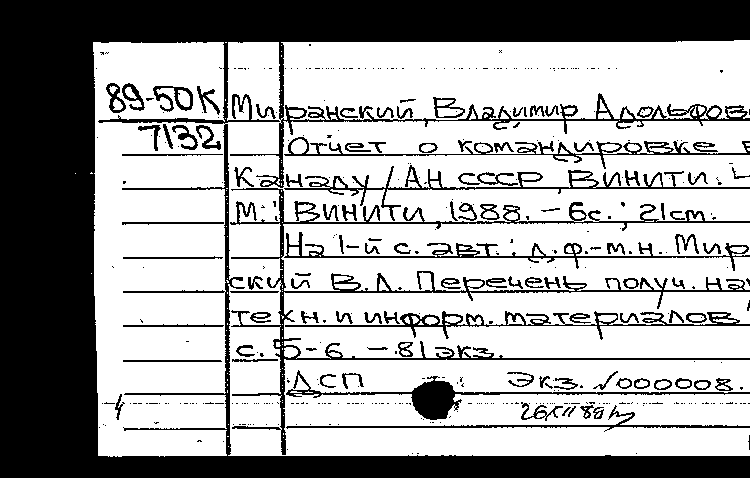 89-50К Миранский, Владимир Адольфов
7132 Отчет о командировке в
Канаду / АН СССР, ВИНИТИ. -
М.: ВИНИТИ, 1988. - 6с.; 21см.
На 1-й с. авт.: д.ф.-м.н. Мир
ский В.Л. Перечень получ. на
техн. и информ. материалов
с. 5-6. - 81 экз.
ДСП Экз. №000008.